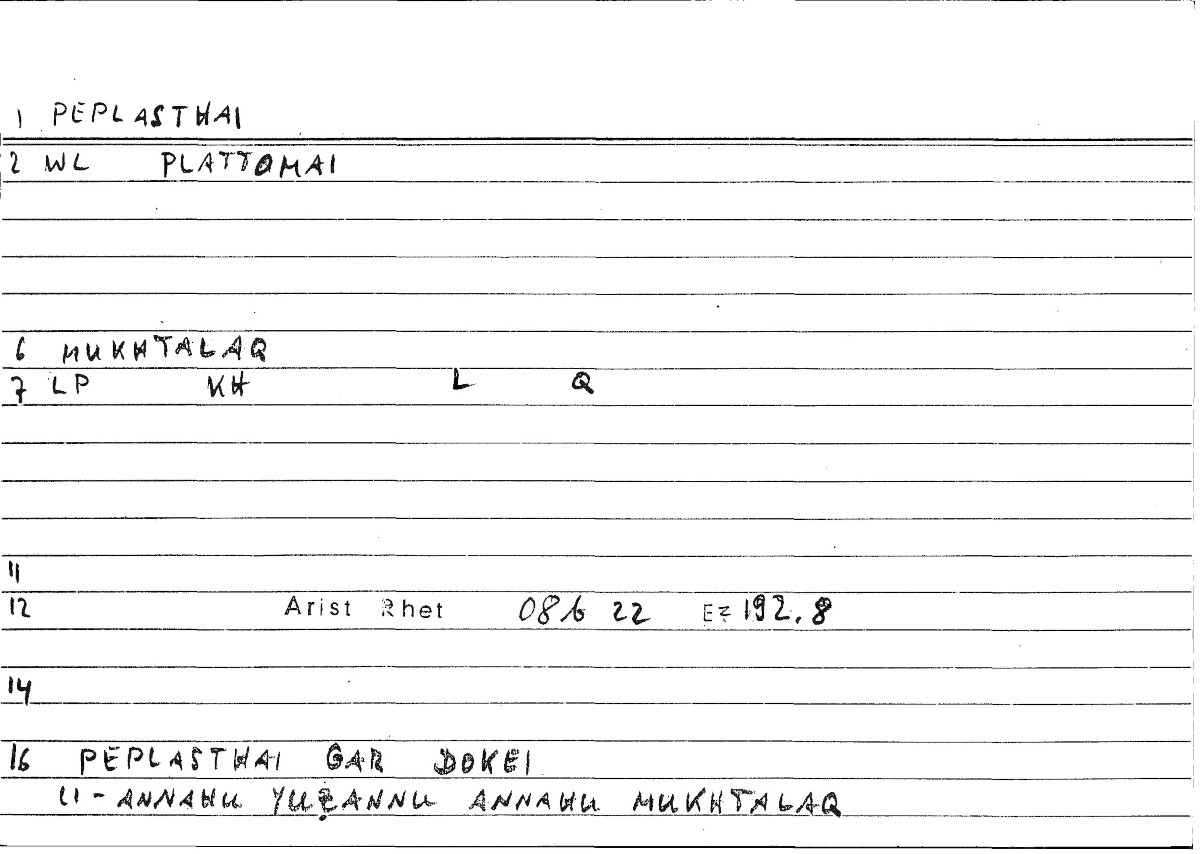 1 PEPLASTHAI
2 WL PLATTOMAI
6 MUKHTALAQ
7 LP KH L Q
11
12 Arist Rhet 08b 22 Ez 192.8
14
16 PEPLASTHAI GAR DOKEI
LI-ANNAHU YUẒANNU ANNAHU MUKHTALAQ